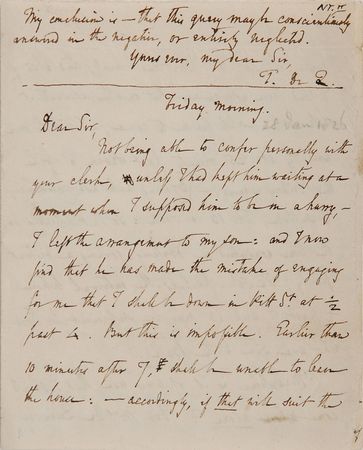 NY. II
My conclusion is — that this query may be conscientiously
answered in the negative, or entirely neglected.
Yours ever, my dear Sir,
T. De Q.
Friday morning.
Dear Sir,
Not being able to confer personally with
your clerk, unless I had kept him waiting at a
moment when I supposed him to be in a hurry, —
I left the arrangement to my son: and I now
find that he has made the mistake of engaging
for me that I shall be down in St at ½
past 4. But this is impossible. Earlier than
10 minutes after 7, I shall be unable to leave
the house: — accordingly, if that will suit the